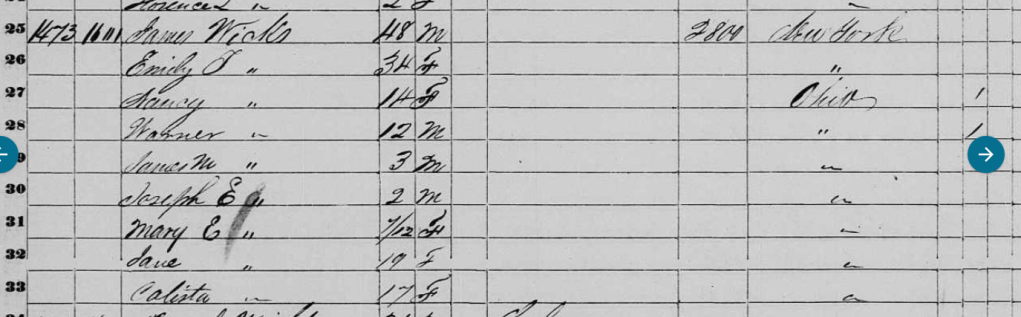 Florence " 2 F "
25 1473 James Wicks 48 M 2800 New York
26 Emily T " 34 F "
27 Nancy " 14 F Ohio 1
28 Warner " 12 M " 1
9 James M " 3 M "
30 Joseph E " 2 M "
31 Mary E " 7/12 F "
32 Jane " 19 F "
33 Calista " 17 F "